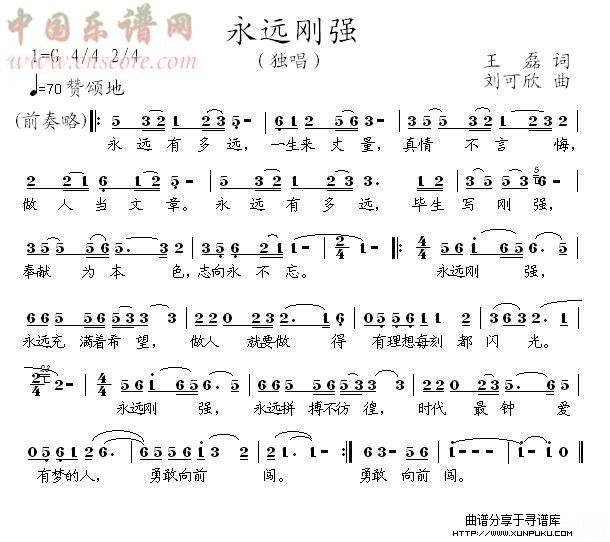 中国乐谱网
www.cnscore.com
永远刚强
1=G 4/4 2/4
（独唱）
王 磊 词
♩=70 赞颂地
刘可欣 曲
(前奏略)
永 远 有 多 远， 一生来 丈 量， 真情 不 言 悔，
做 人 当 文 章。 永 远 有 多 远， 毕生 写 刚 强，
奉献 为 本 色，志向永 不 忘。 永远刚 强，
永远充 满着希 望， 做人 就要做 得 有理想每刻 都 闪 光。
永远刚 强， 永远拼 搏不彷 徨， 时代 最 钟 爱
有梦的人， 勇敢向前 闯。 勇敢 向前 闯。
曲谱分享于寻谱库
HTTP://WWW.XUNPUKU.COM